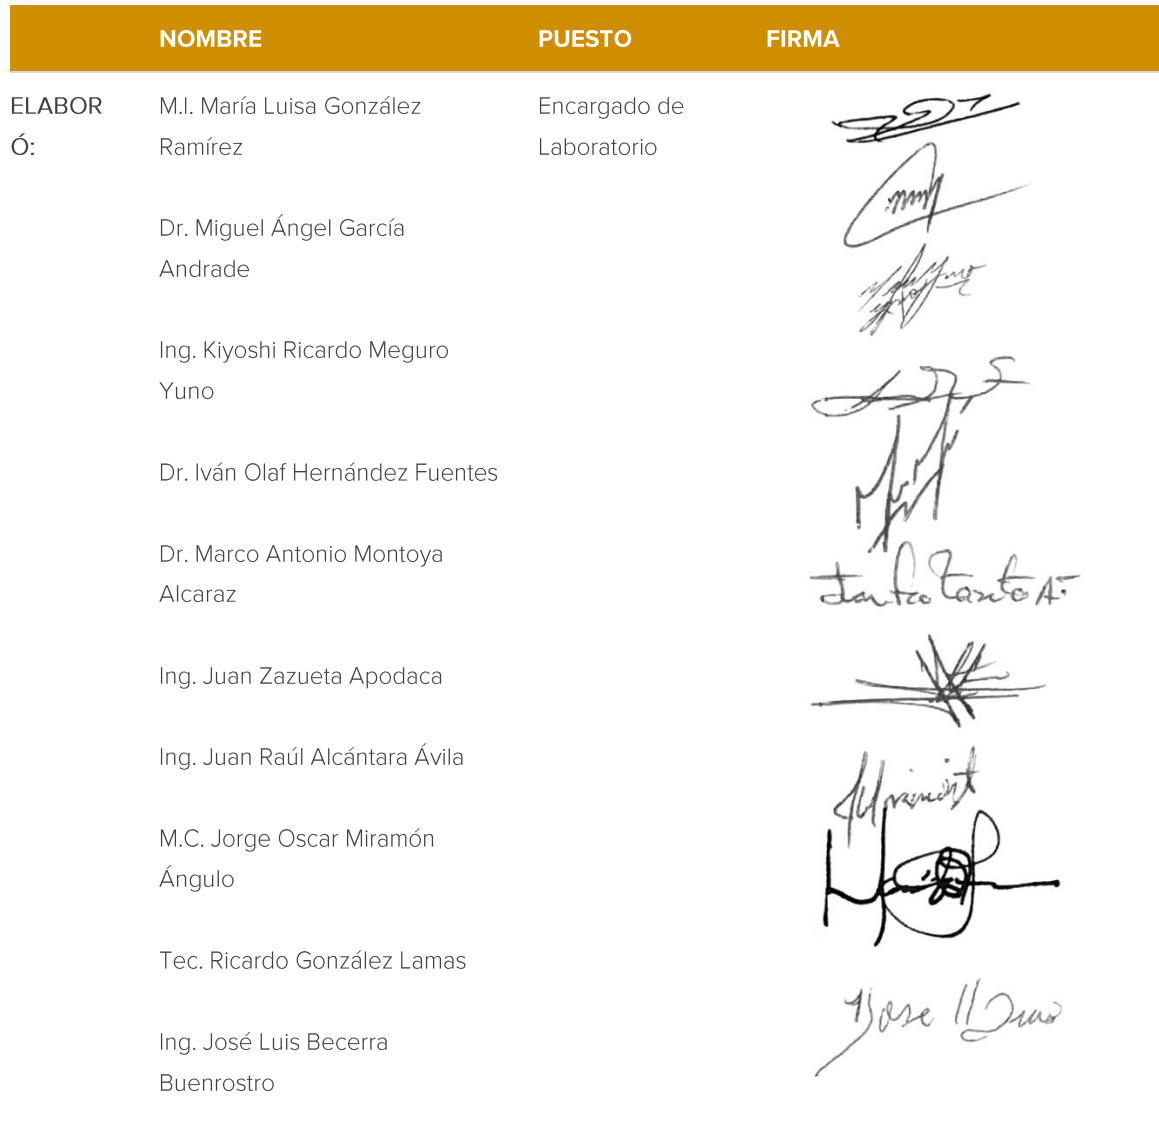 NOMBRE PUESTO FIRMA
ELABOR M.I. María Luisa González Encargado de
Ó: Ramírez Laboratorio
Dr. Miguel Ángel García
Andrade
Ing. Kiyoshi Ricardo Meguro
Yuno
Dr. Iván Olaf Hernández Fuentes
Dr. Marco Antonio Montoya
Alcaraz
Ing. Juan Zazueta Apodaca
Ing. Juan Raúl Alcántara Ávila
M.C. Jorge Oscar Miramón
Ángulo
Tec. Ricardo González Lamas
Ing. José Luis Becerra
Buenrostro